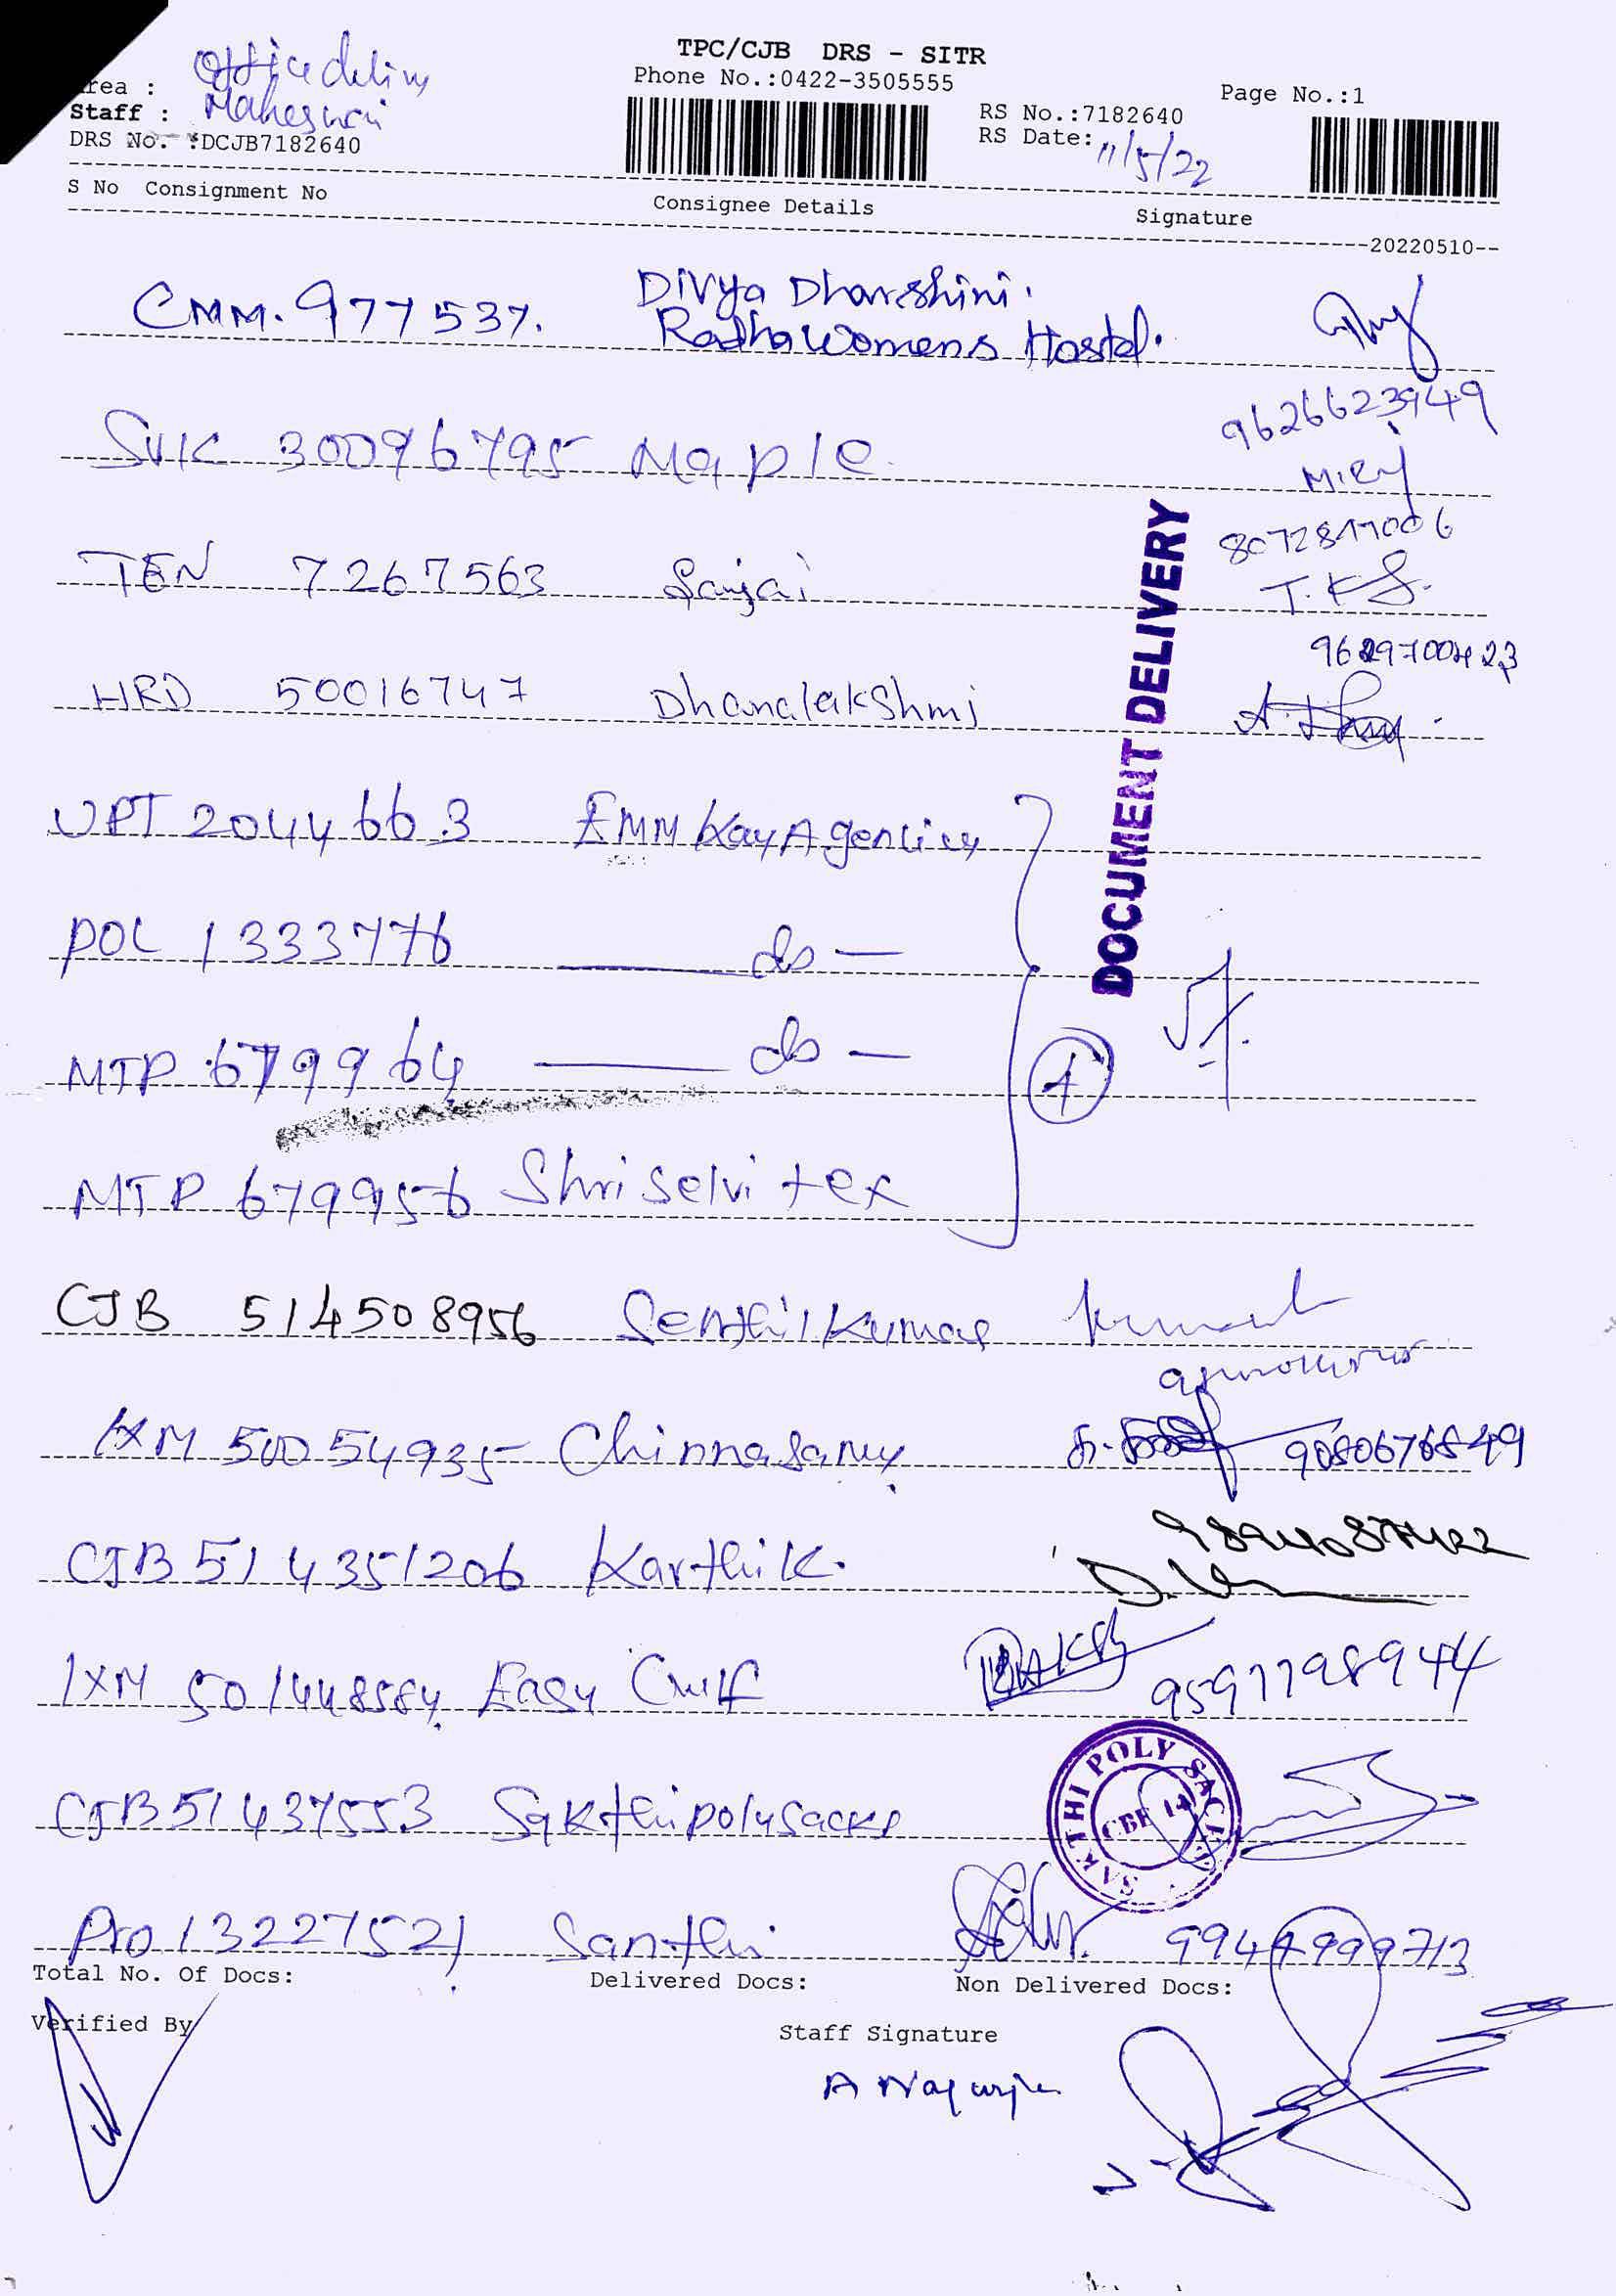 TPC/CJB DRS - SITR
Phone No.:0422-3505555
Page No.:1
Area : Office delivy
Staff : Maheswari
DRS No. :DCJB7182640
RS No.:7182640
RS Date: 11/5/22
S No Consignment No Consignee Details Signature
20220510
CMM. 977537. Divya Dharshini.
Radha Womens Hostel.
9626623949
SVK 30096795 Maple
8072817006
TEN 7267563 Sanjai
T.K.S.
HRD 50016747 Dhanalakshmi
UPT 2044663 EMM Kay Agencies
POL 1333776 do
MTP 679964 do
MTP 679956 Shri Selvi tex
4
DOCUMENT DELIVERY
CJB 514508956 Senthil Kumar
IXM 50054935 Chinnasamy
9080676849
CJB 514351206 Karthik.
IXM 501448584 Easy Culf
9597798944
CJB 51437553 Sakthi poly sacks
SAKTHI POLY SACKS
CBE 14
Pro 13227521 Santhi
Total No. Of Docs: Delivered Docs: Non Delivered Docs:
Verified By
Staff Signature